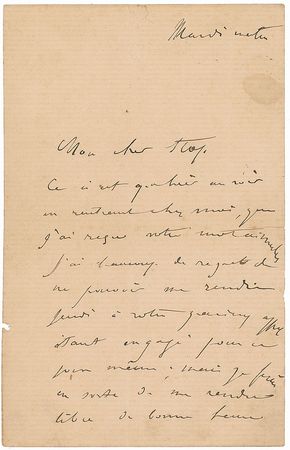 Mardi matin
Mon cher Stop,
Ce n'est qu'hier au soir
en rentrant chez moi que
j'ai reçu votre mot aimable
j'ai beaucoup de regret de
ne pouvoir me rendre
jeudi à votre gracieux appel
étant engagé pour ce
jour même ; mais je ferai
en sorte de me rendre
libre de bonne heure